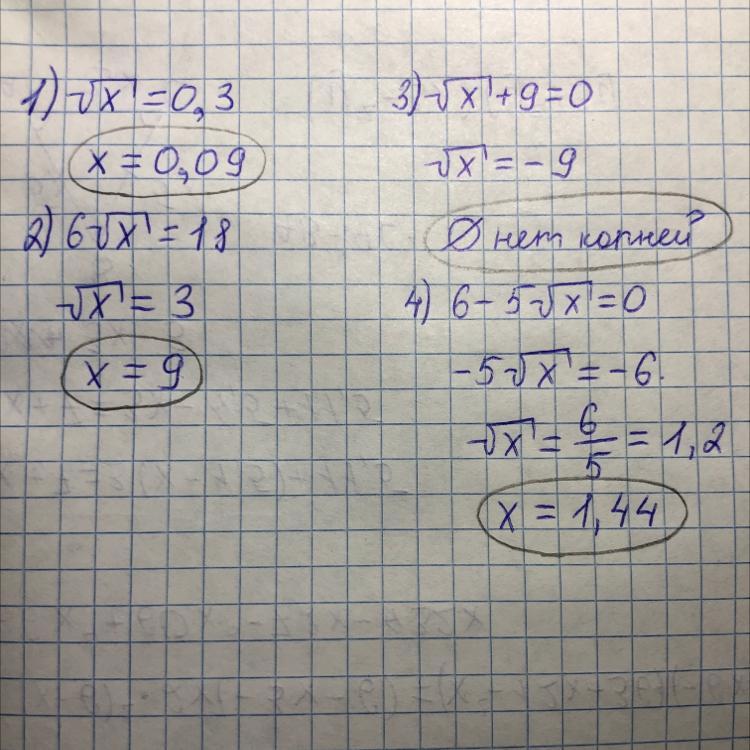 1) √x = 0,3
x = 0,09
2) 6√x = 18
√x = 3
x = 9
3) √x + 9 = 0
√x = - 9
∅ нет корней
4) 6 - 5√x = 0
-5√x = -6.
√x = 6/5 = 1,2
x = 1,44